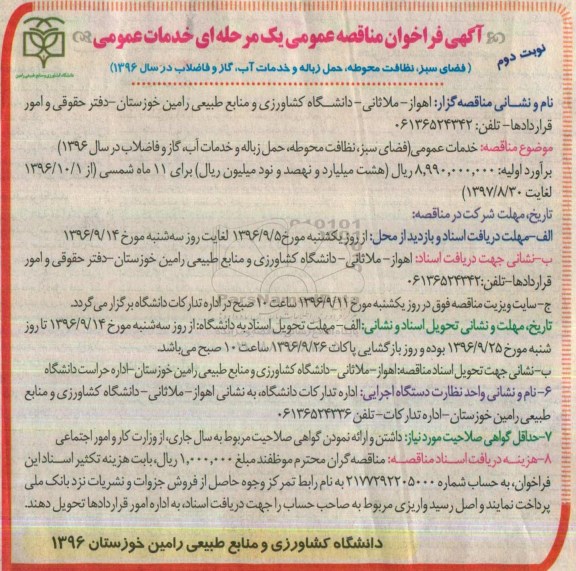 آگهی فراخوان مناقصه عمومی یک مرحله‌ای خدمات عمومی
نوبت دوم
( فضای سبز، نظافت محوطه، حمل زباله و خدمات آب، گاز و فاضلاب در سال ۱۳۹۶)
نام و نشانی مناقصه‌گزار: اهواز - ملاثانی - دانشگاه کشاورزی و منابع طبیعی رامین خوزستان - دفتر حقوقی و امور
قراردادها - تلفن: ۰۶۱۳۶۵۲۴۳۴۲
موضوع مناقصه: خدمات عمومی (فضای سبز، نظافت محوطه، حمل زباله و خدمات آب، گاز و فاضلاب در سال ۱۳۹۶)
برآورد اولیه: ۸,۹۹۰,۰۰۰,۰۰۰ ریال (هشت میلیارد و نهصد و نود میلیون ریال) برای ۱۱ ماه شمسی (از ۱۳۹۶/۱۰/۱
لغایت ۱۳۹۷/۸/۳۰)
تاریخ، مهلت شرکت در مناقصه:
الف - مهلت دریافت اسناد و بازدید از محل: از روز یکشنبه مورخ ۱۳۹۶/۹/۵ لغایت روز سه‌شنبه مورخ ۱۳۹۶/۹/۱۴
ب - نشانی جهت دریافت اسناد: اهواز - ملاثانی - دانشگاه کشاورزی و منابع طبیعی رامین خوزستان - دفتر حقوقی و امور
قراردادها - تلفن: ۰۶۱۳۶۵۲۴۳۴۲
ج - سایت ویزیت مناقصه فوق در روز یکشنبه مورخ ۱۳۹۶/۹/۱۱ ساعت ۱۰ صبح در اداره تدارکات دانشگاه برگزار می‌گردد.
تاریخ، مهلت و نشانی تحویل اسناد و نشانی: الف - مهلت تحویل اسناد به دانشگاه: از روز سه‌شنبه مورخ ۱۳۹۶/۹/۱۴ تا روز
شنبه مورخ ۱۳۹۶/۹/۲۵ بوده و روز بازگشایی پاکات ۱۳۹۶/۹/۲۶ ساعت ۱۰ صبح می‌باشد.
ب - نشانی جهت تحویل اسناد مناقصه: اهواز - ملاثانی - دانشگاه کشاورزی و منابع طبیعی رامین خوزستان - اداره حراست دانشگاه
۶ - نام و نشانی واحد نظارت دستگاه اجرایی: اداره تدارکات دانشگاه، به نشانی اهواز - ملاثانی - دانشگاه کشاورزی و منابع
طبیعی رامین خوزستان - اداره تدارکات - تلفن ۰۶۱۳۶۵۲۴۳۳۶
۷ - حداقل گواهی صلاحیت مورد نیاز: داشتن و ارائه نمودن گواهی صلاحیت مربوط به سال جاری، از وزارت کار و امور اجتماعی
۸ - هزینه دریافت اسناد مناقصه: مناقصه‌گران محترم موظفند مبلغ ۱,۰۰۰,۰۰۰ ریال، بابت هزینه تکثیر اسناد این
فراخوان، به حساب شماره ۲۱۷۷۲۹۲۲۰۵۰۰۰ به نام رابط تمرکز وجوه حاصل از فروش جزوات و نشریات نزد بانک ملی
پرداخت نمایند و اصل رسید واریزی مربوط به صاحب حساب را جهت دریافت اسناد، به اداره امور قراردادها تحویل دهند.
دانشگاه کشاورزی و منابع طبیعی رامین خوزستان ۱۳۹۶